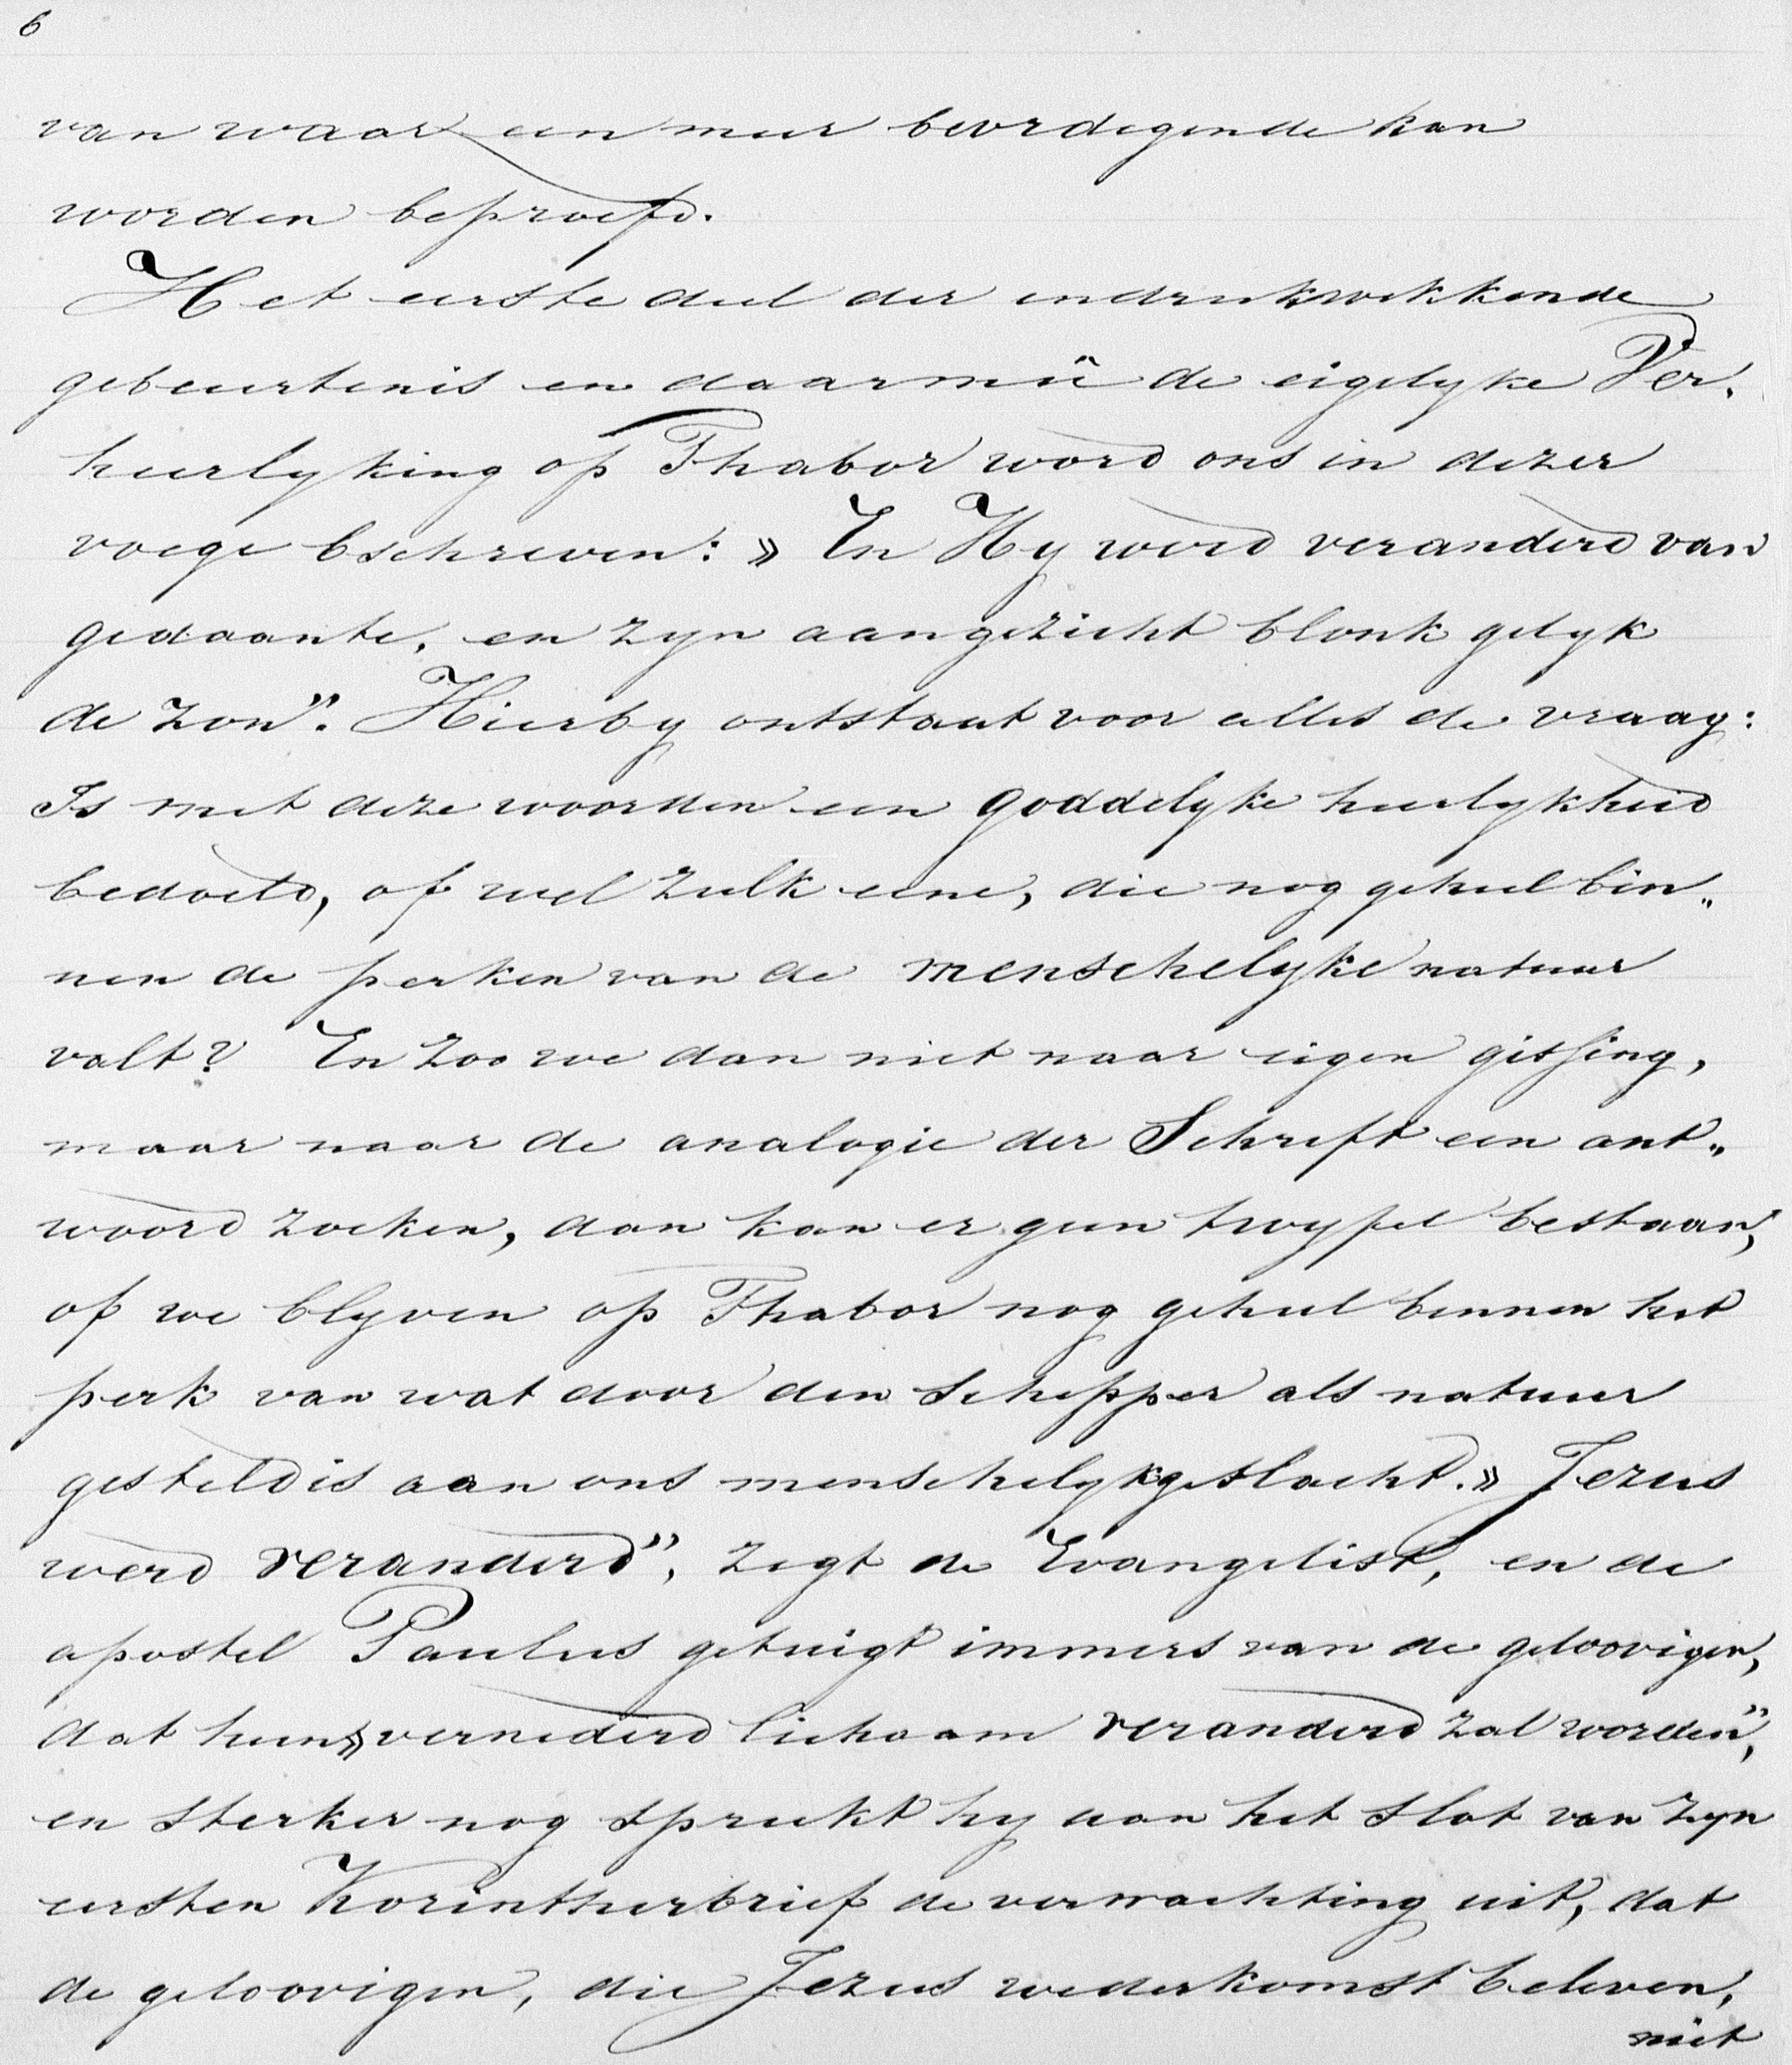 6
van waar een meer bevredigende kan
worden beproefd.
Het eerste deel der indrukwekkende
gebeurtenis en daarmeê de eigelyke Ver„
heerlyking op Thabor word ons in dezer
voege bschreven: » En Hy werd veranderd van
gedaante, en zyn aangezicht blonk gelyk
de zon”. Hierby ontstaat voor alles de vraag:
Is met deze woorden een goddelyke heerlykheid
bedoeld, of wel zulk eene, die nog geheel bin„
nen de perken van de menschelyke natuur
valt? En zoo we dan niet naar eigen gissing,
maar naar de analogie der Schrift een ant„
woord zoeken, dan kan er geen twyfel bestaan,
of we blyven op Thabor nog geheel binnen het
perk van wat door den Schepper als natuur
gesteld is aan ons menschelyk geslacht. » Jezus
werd veranderd”, zegt de Evangelist, en de
apostel Paulus getuigt immers van de geloovigen,
dat hun » vernederd lichaam veranderd zal worden”,
en sterker nog spreekt hy aan het slot van zyn
eersten Korintherbrief de verwachting uit, dat
de geloovigen, die Jezus wederkomst beleven,
niet